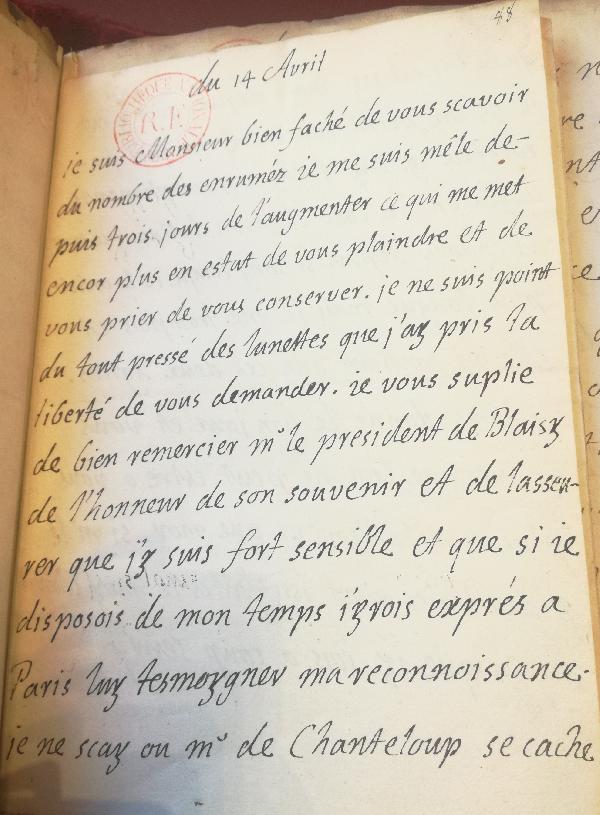 48
du 14 Avril
R.F
je suis Monsieur bien faché de vous scavoir
du nombre des enruméz ie me suis mêle de-
puis trois jours de l'augmenter ce qui me met
encor plus en estat de vous plaindre et de
vous prier de vous conserver. je ne suis point
du tout pressé des lunettes que j'ay pris la
liberté de vous demander. ie vous suplie
de bien remercier mr le president de Blaisy
de l'honneur de son souvenir et de lasseu-
rer que j'y suis fort sensible et que si ie
disposois de mon temps i'yrois exprés a
Paris luy tesmoygner ma reconnoissance.
je ne scay ou mr de Chanteloup se cache